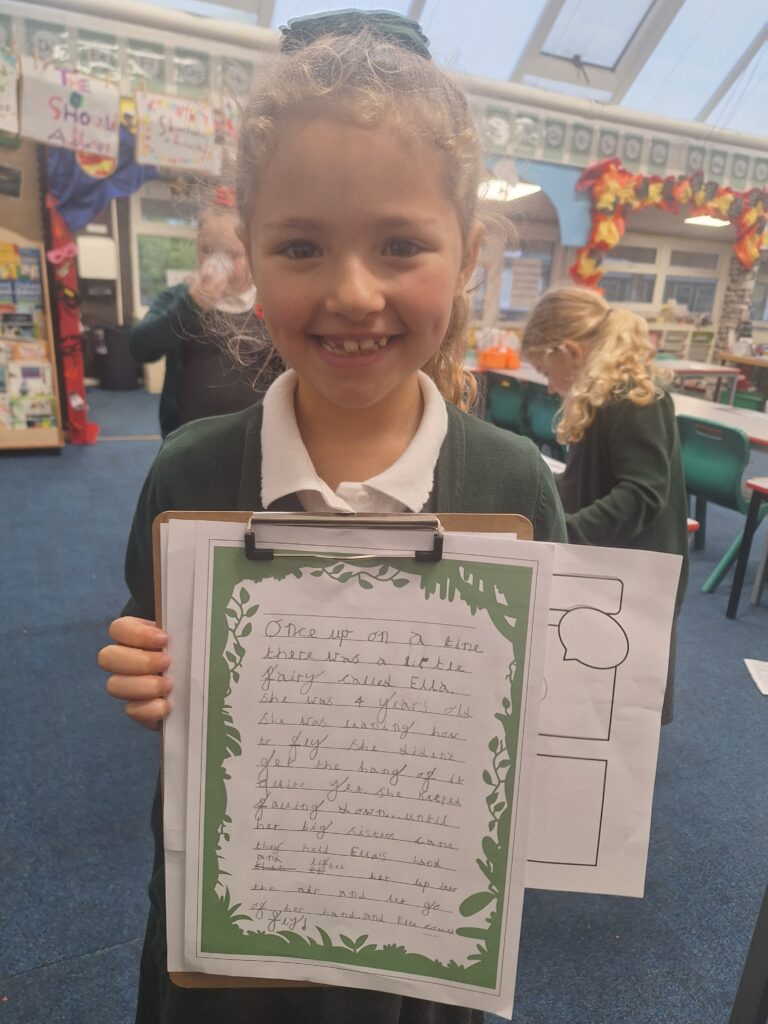 THE
Should
Always
Once upon a time
there was a little
fairy called Ella.
she was 4 years old
she was leaning how
to fly she didn't
get the hang of it
quite yet. she keeped
fauing down... until
her big sisters came
they held Ella's hand
and liftee her up into
the air and let go
of her hand and Ella could
fly!